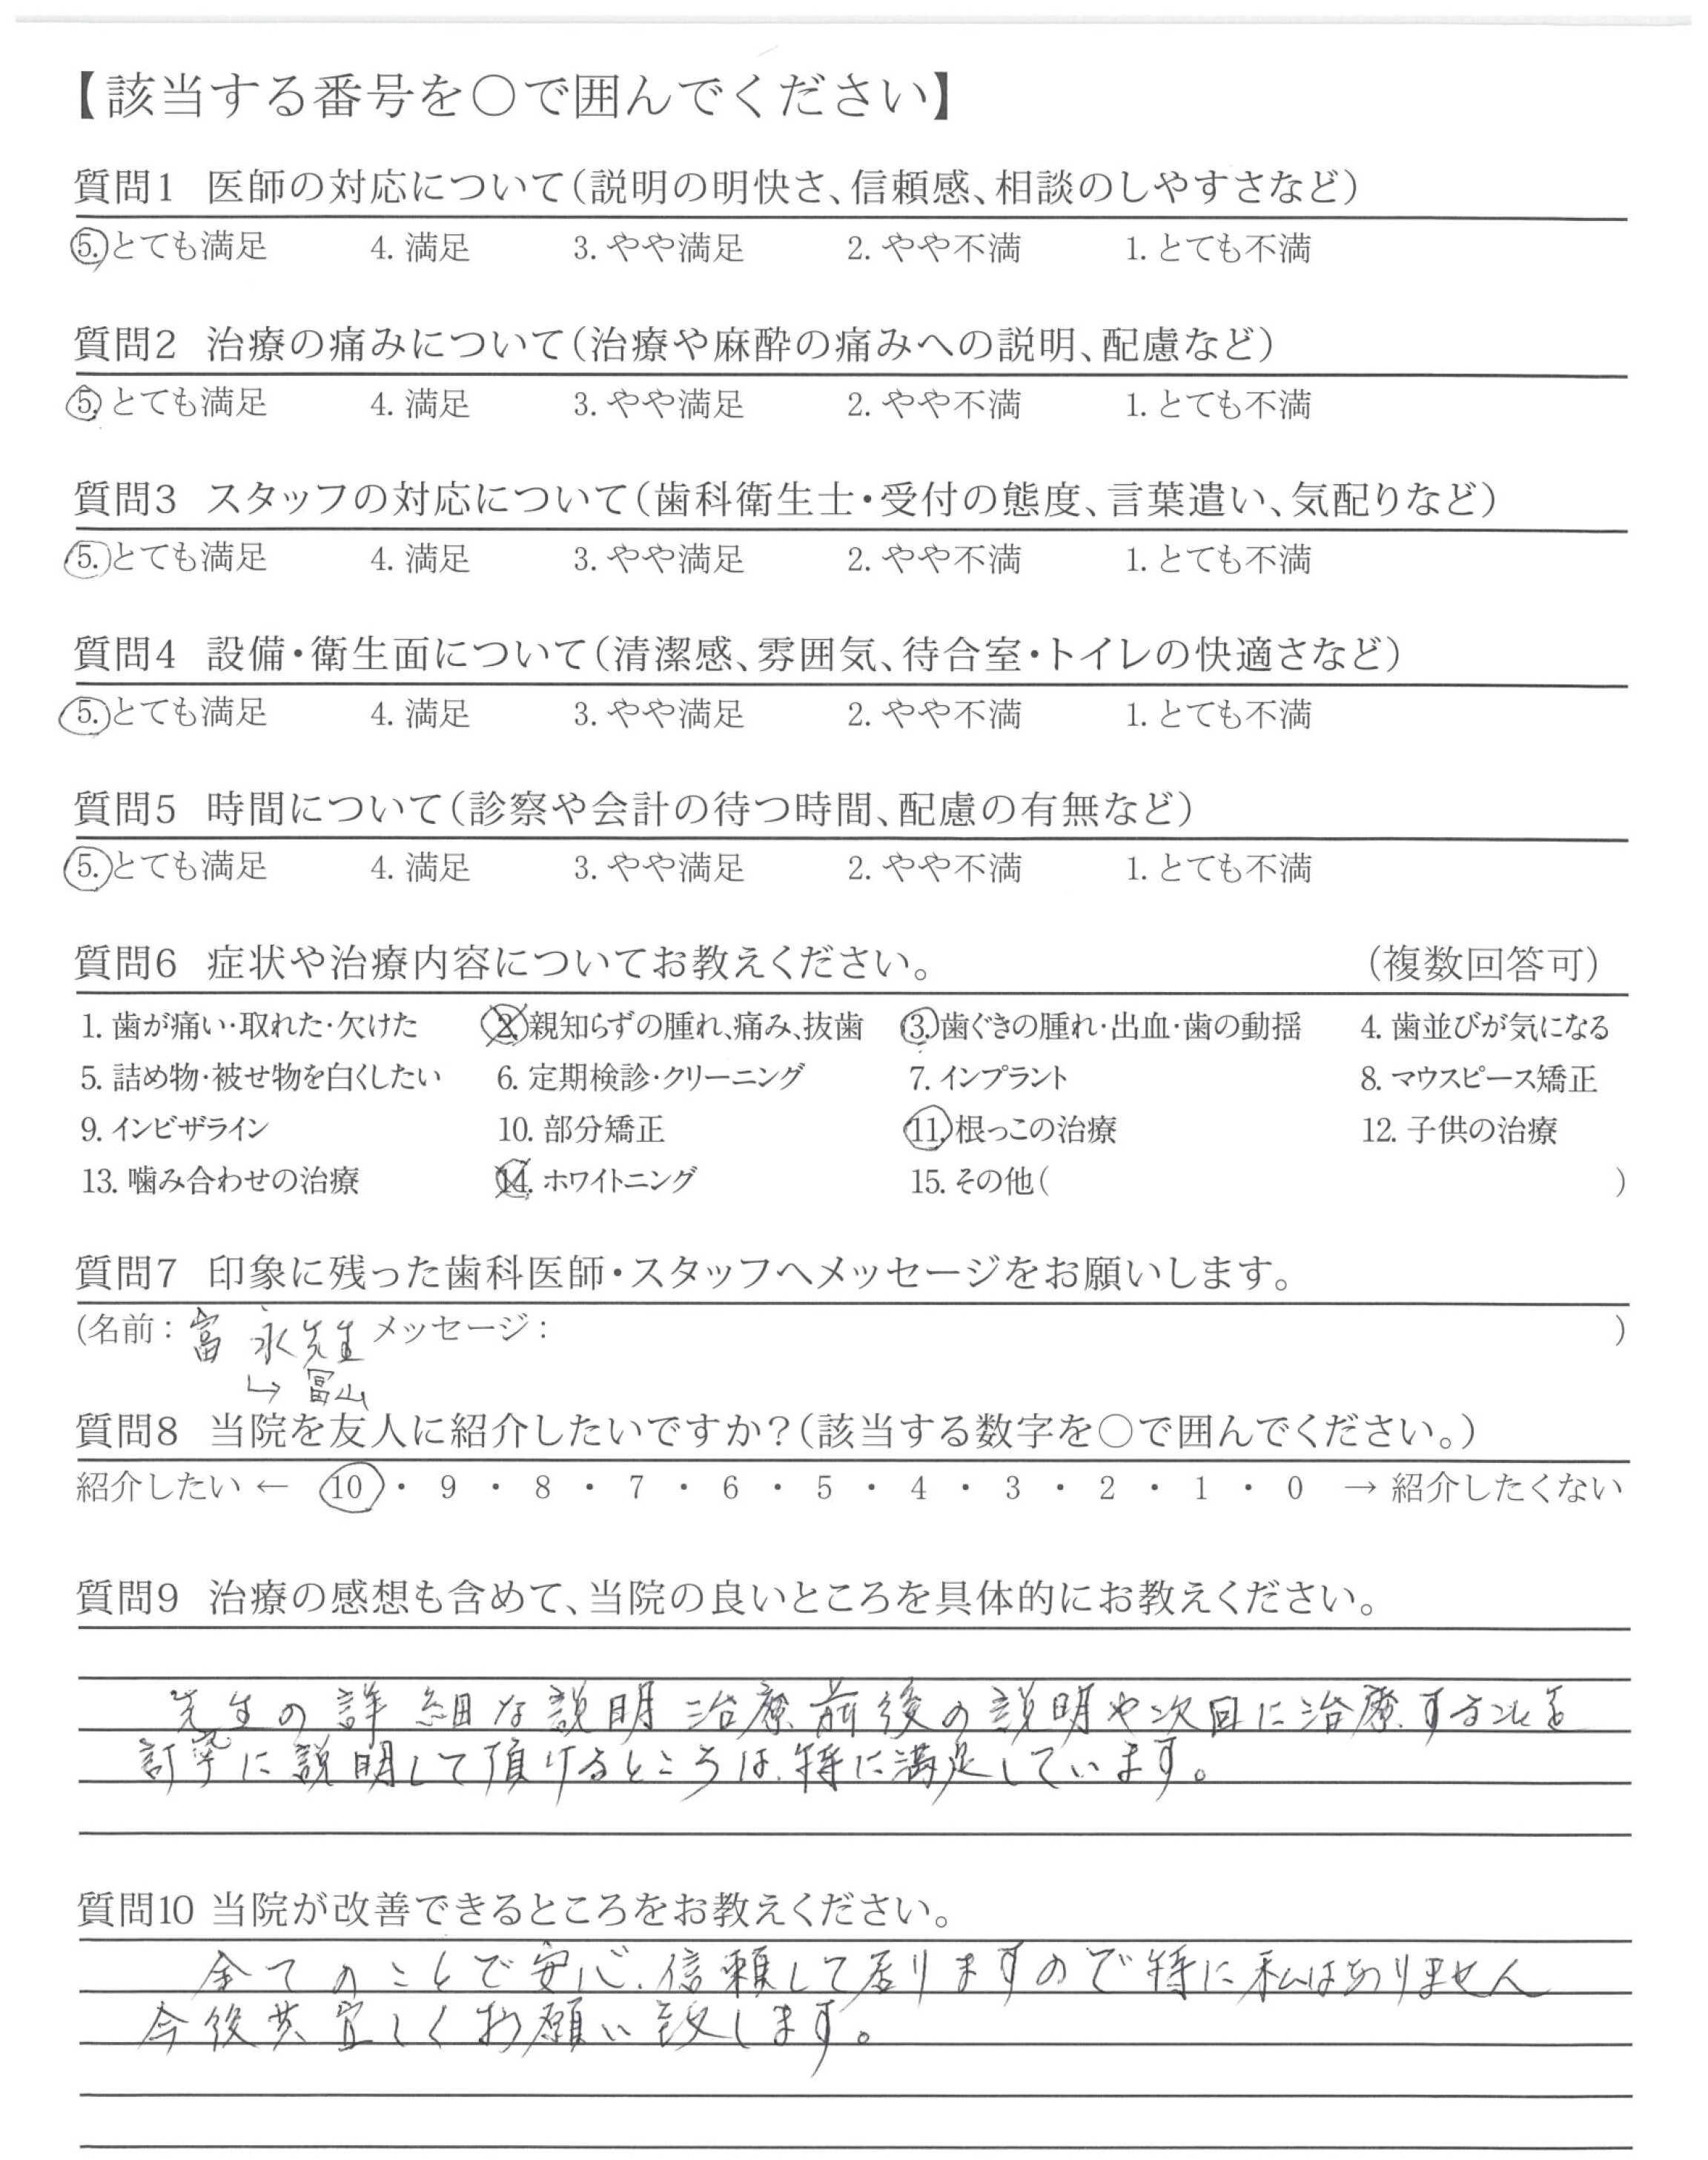 【該当する番号を○で囲んでください】
質問1 医師の対応について(説明の明快さ、信頼感、相談のしやすさなど)
5. とても満足 4. 満足 3. やや満足 2. やや不満 1. とても不満
質問2 治療の痛みについて(治療や麻酔の痛みへの説明、配慮など)
5. とても満足 4. 満足 3. やや満足 2. やや不満 1. とても不満
質問3 スタッフの対応について(歯科衛生士・受付の態度、言葉遣い、気配りなど)
5. とても満足 4. 満足 3. やや満足 2. やや不満 1. とても不満
質問4 設備・衛生面について(清潔感、雰囲気、待合室・トイレの快適さなど)
5. とても満足 4. 満足 3. やや満足 2. やや不満 1. とても不満
質問5 時間について(診察や会計の待つ時間、配慮の有無など)
5. とても満足 4. 満足 3. やや満足 2. やや不満 1. とても不満
質問6 症状や治療内容についてお教えください。 (複数回答可)
1. 歯が痛い・取れた・欠けた 2. 親知らずの腫れ、痛み、抜歯 3. 歯ぐきの腫れ・出血・歯の動揺 4. 歯並びが気になる
5. 詰め物・被せ物を白くしたい 6. 定期検診・クリーニング 7. インプラント 8. マウスピース矯正
9. インビザライン 10. 部分矯正 11. 根っこの治療 12. 子供の治療
13. 噛み合わせの治療 14. ホワイトニング 15. その他( )
質問7 印象に残った歯科医師・スタッフへメッセージをお願いします。
(名前: 富永先生 メッセージ: )
↳ 富山
質問8 当院を友人に紹介したいですか?(該当する数字を○で囲んでください。)
紹介したい ← 10 ・ 9 ・ 8 ・ 7 ・ 6 ・ 5 ・ 4 ・ 3 ・ 2 ・ 1 ・ 0 → 紹介したくない
質問9 治療の感想も含めて、当院の良いところを具体的にお教えください。
先生の詳細な説明 治療前後の説明や次回に治療すること
に説明して頂けるところは、特に満足しています。
質問10 当院が改善できるところをお教えください。
全てのことで安心、信頼して居りますので特に私はありません
今後共宜しくお願い致します。